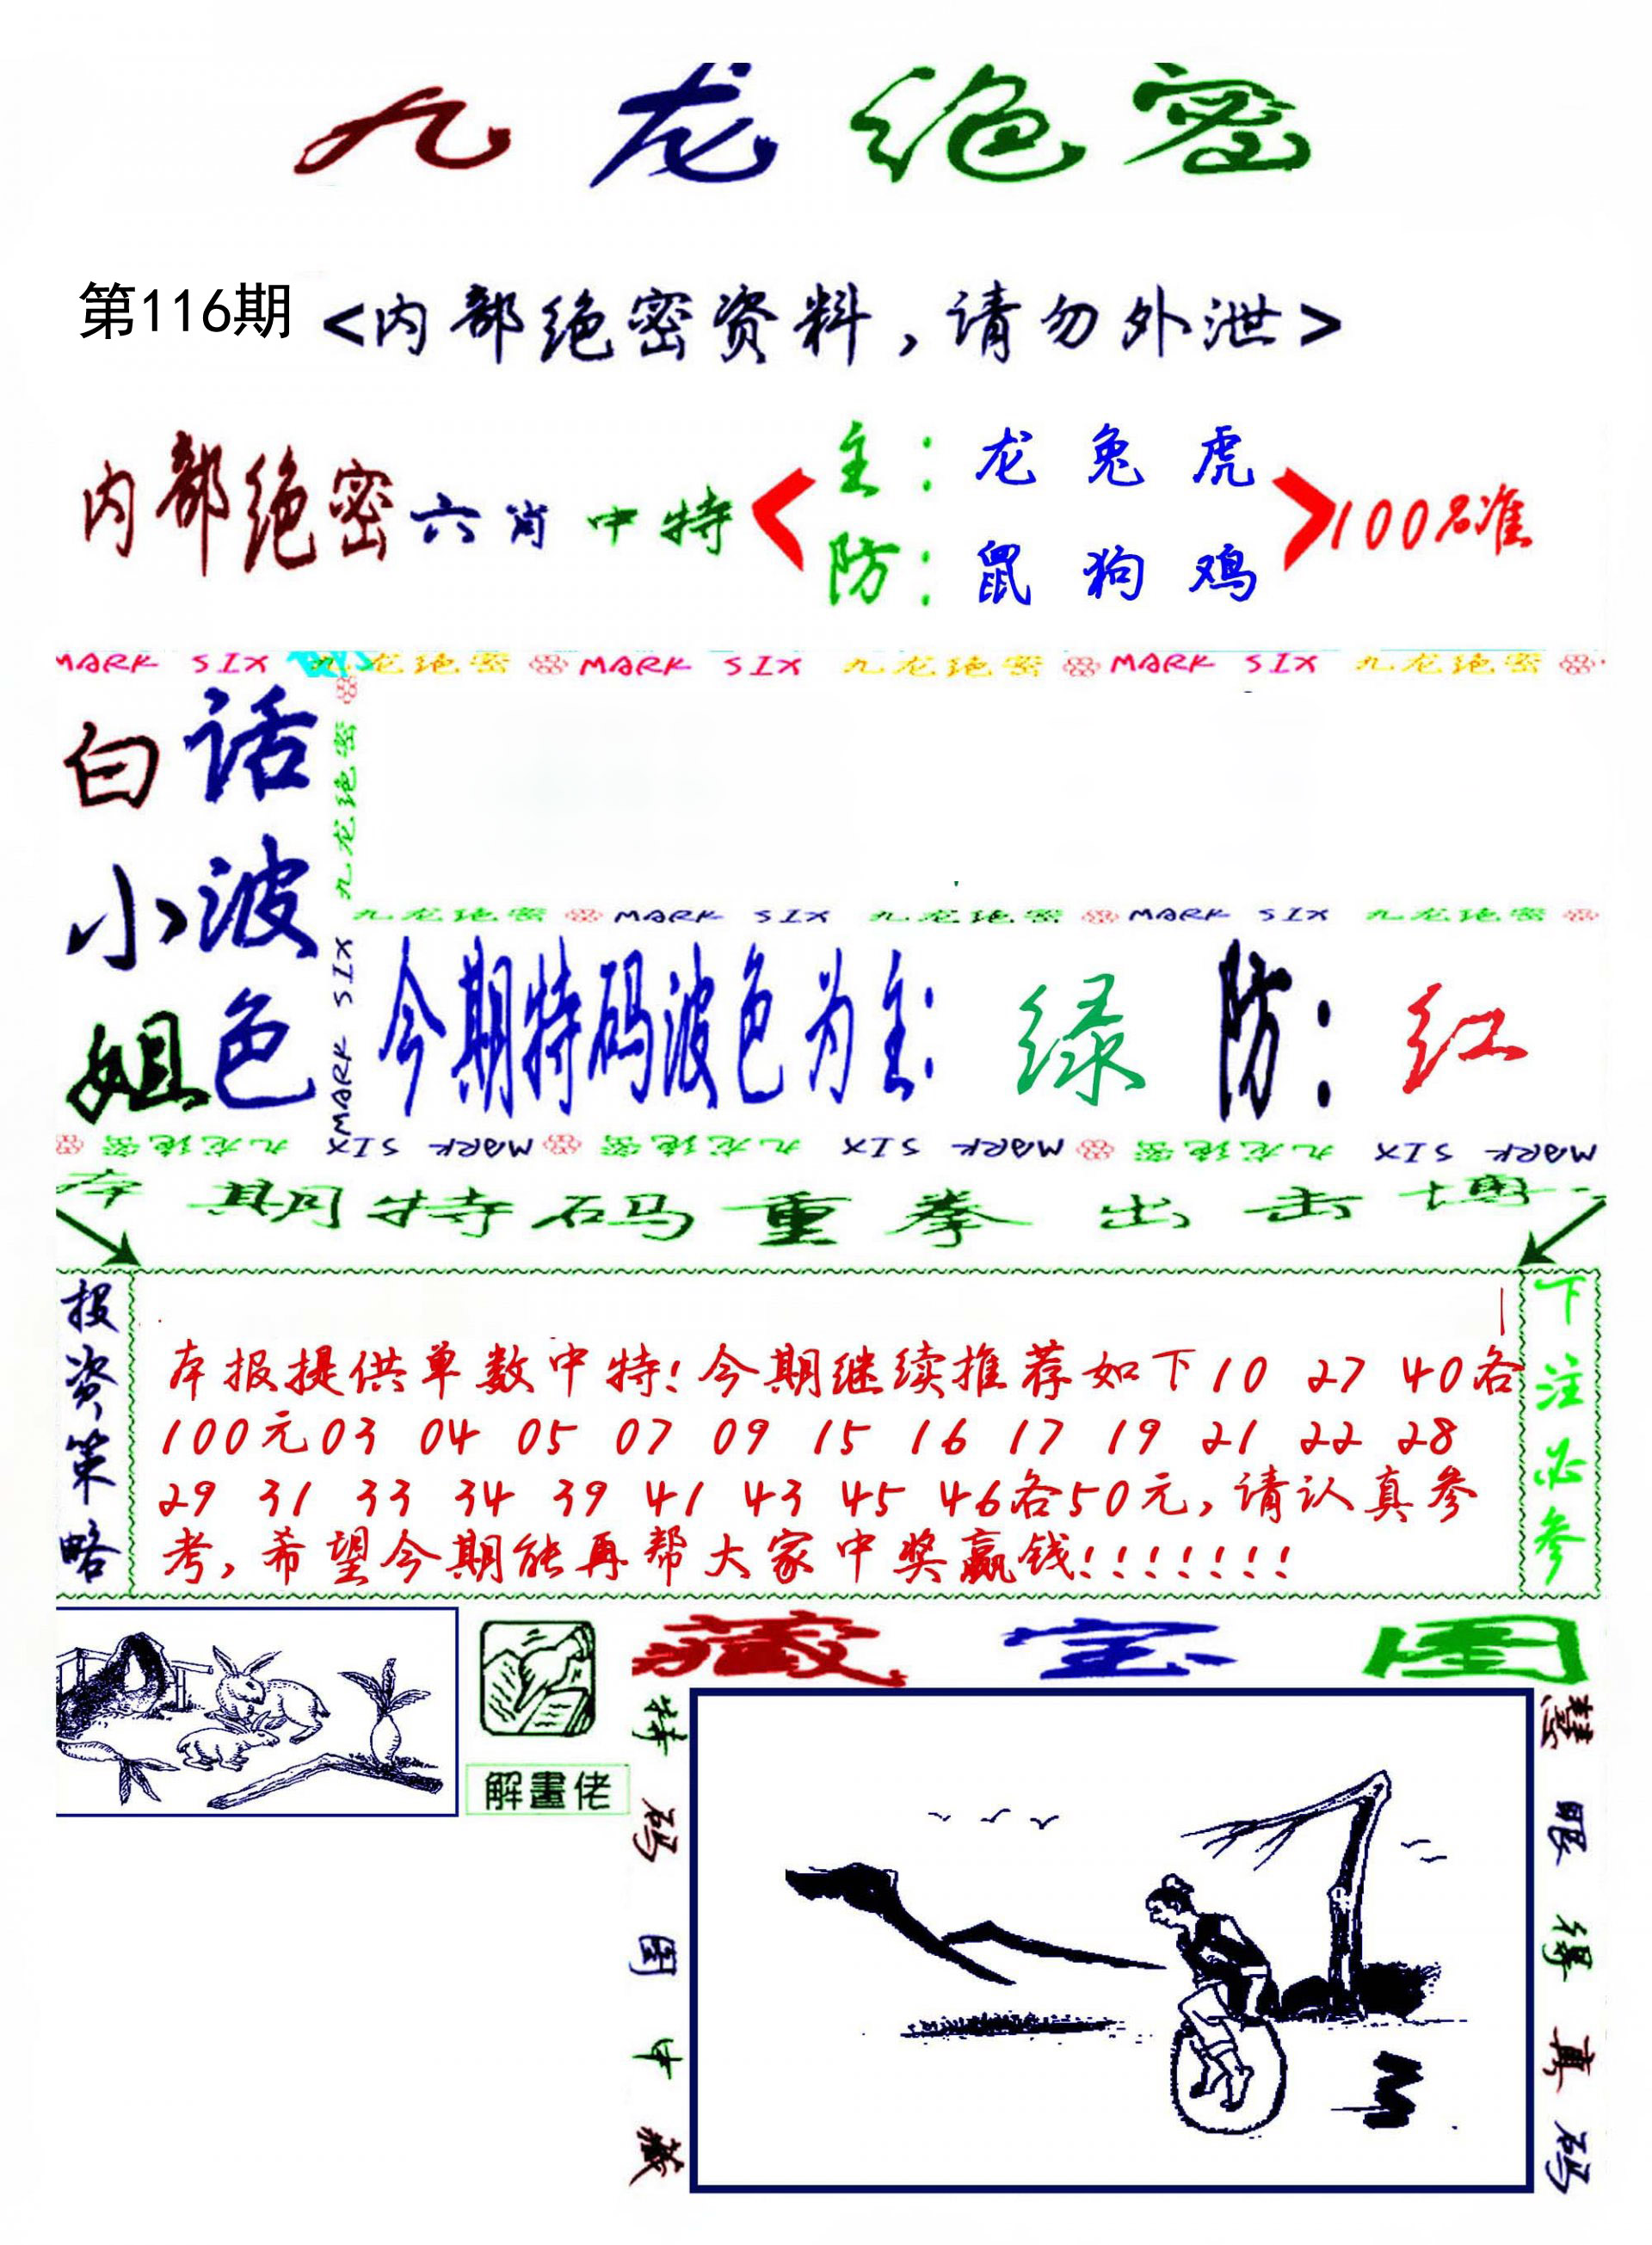 九龙绝密
第116期 <内部绝密资料,请勿外泄>
内部绝密六肖中特
主:龙 兔 虎
防:鼠 狗 鸡
100%准
MARK SIX 九龙绝密 MARK SIX 九龙绝密 MARK SIX 九龙绝密
白小姐
话波色
九龙绝密 MARK SIX
九龙绝密 MARK SIX 九龙绝密 MARK SIX 九龙绝密
今期特码波色为主: 绿 防: 红
MARK SIX 九龙绝密 MARK SIX 九龙绝密 MARK SIX 九龙绝密
本期特码重拳出击博
投资策略
本报提供单数中特!今期继续推荐如下10 27 40各
100元03 04 05 07 09 15 16 17 19 21 22 28
29 31 33 34 39 41 43 45 46各50元,请认真参
考,希望今期能再帮大家中奖赢钱!!!!!!!
下注必参
解畫佬
藏宝图
特码图中藏
慧眼得真码